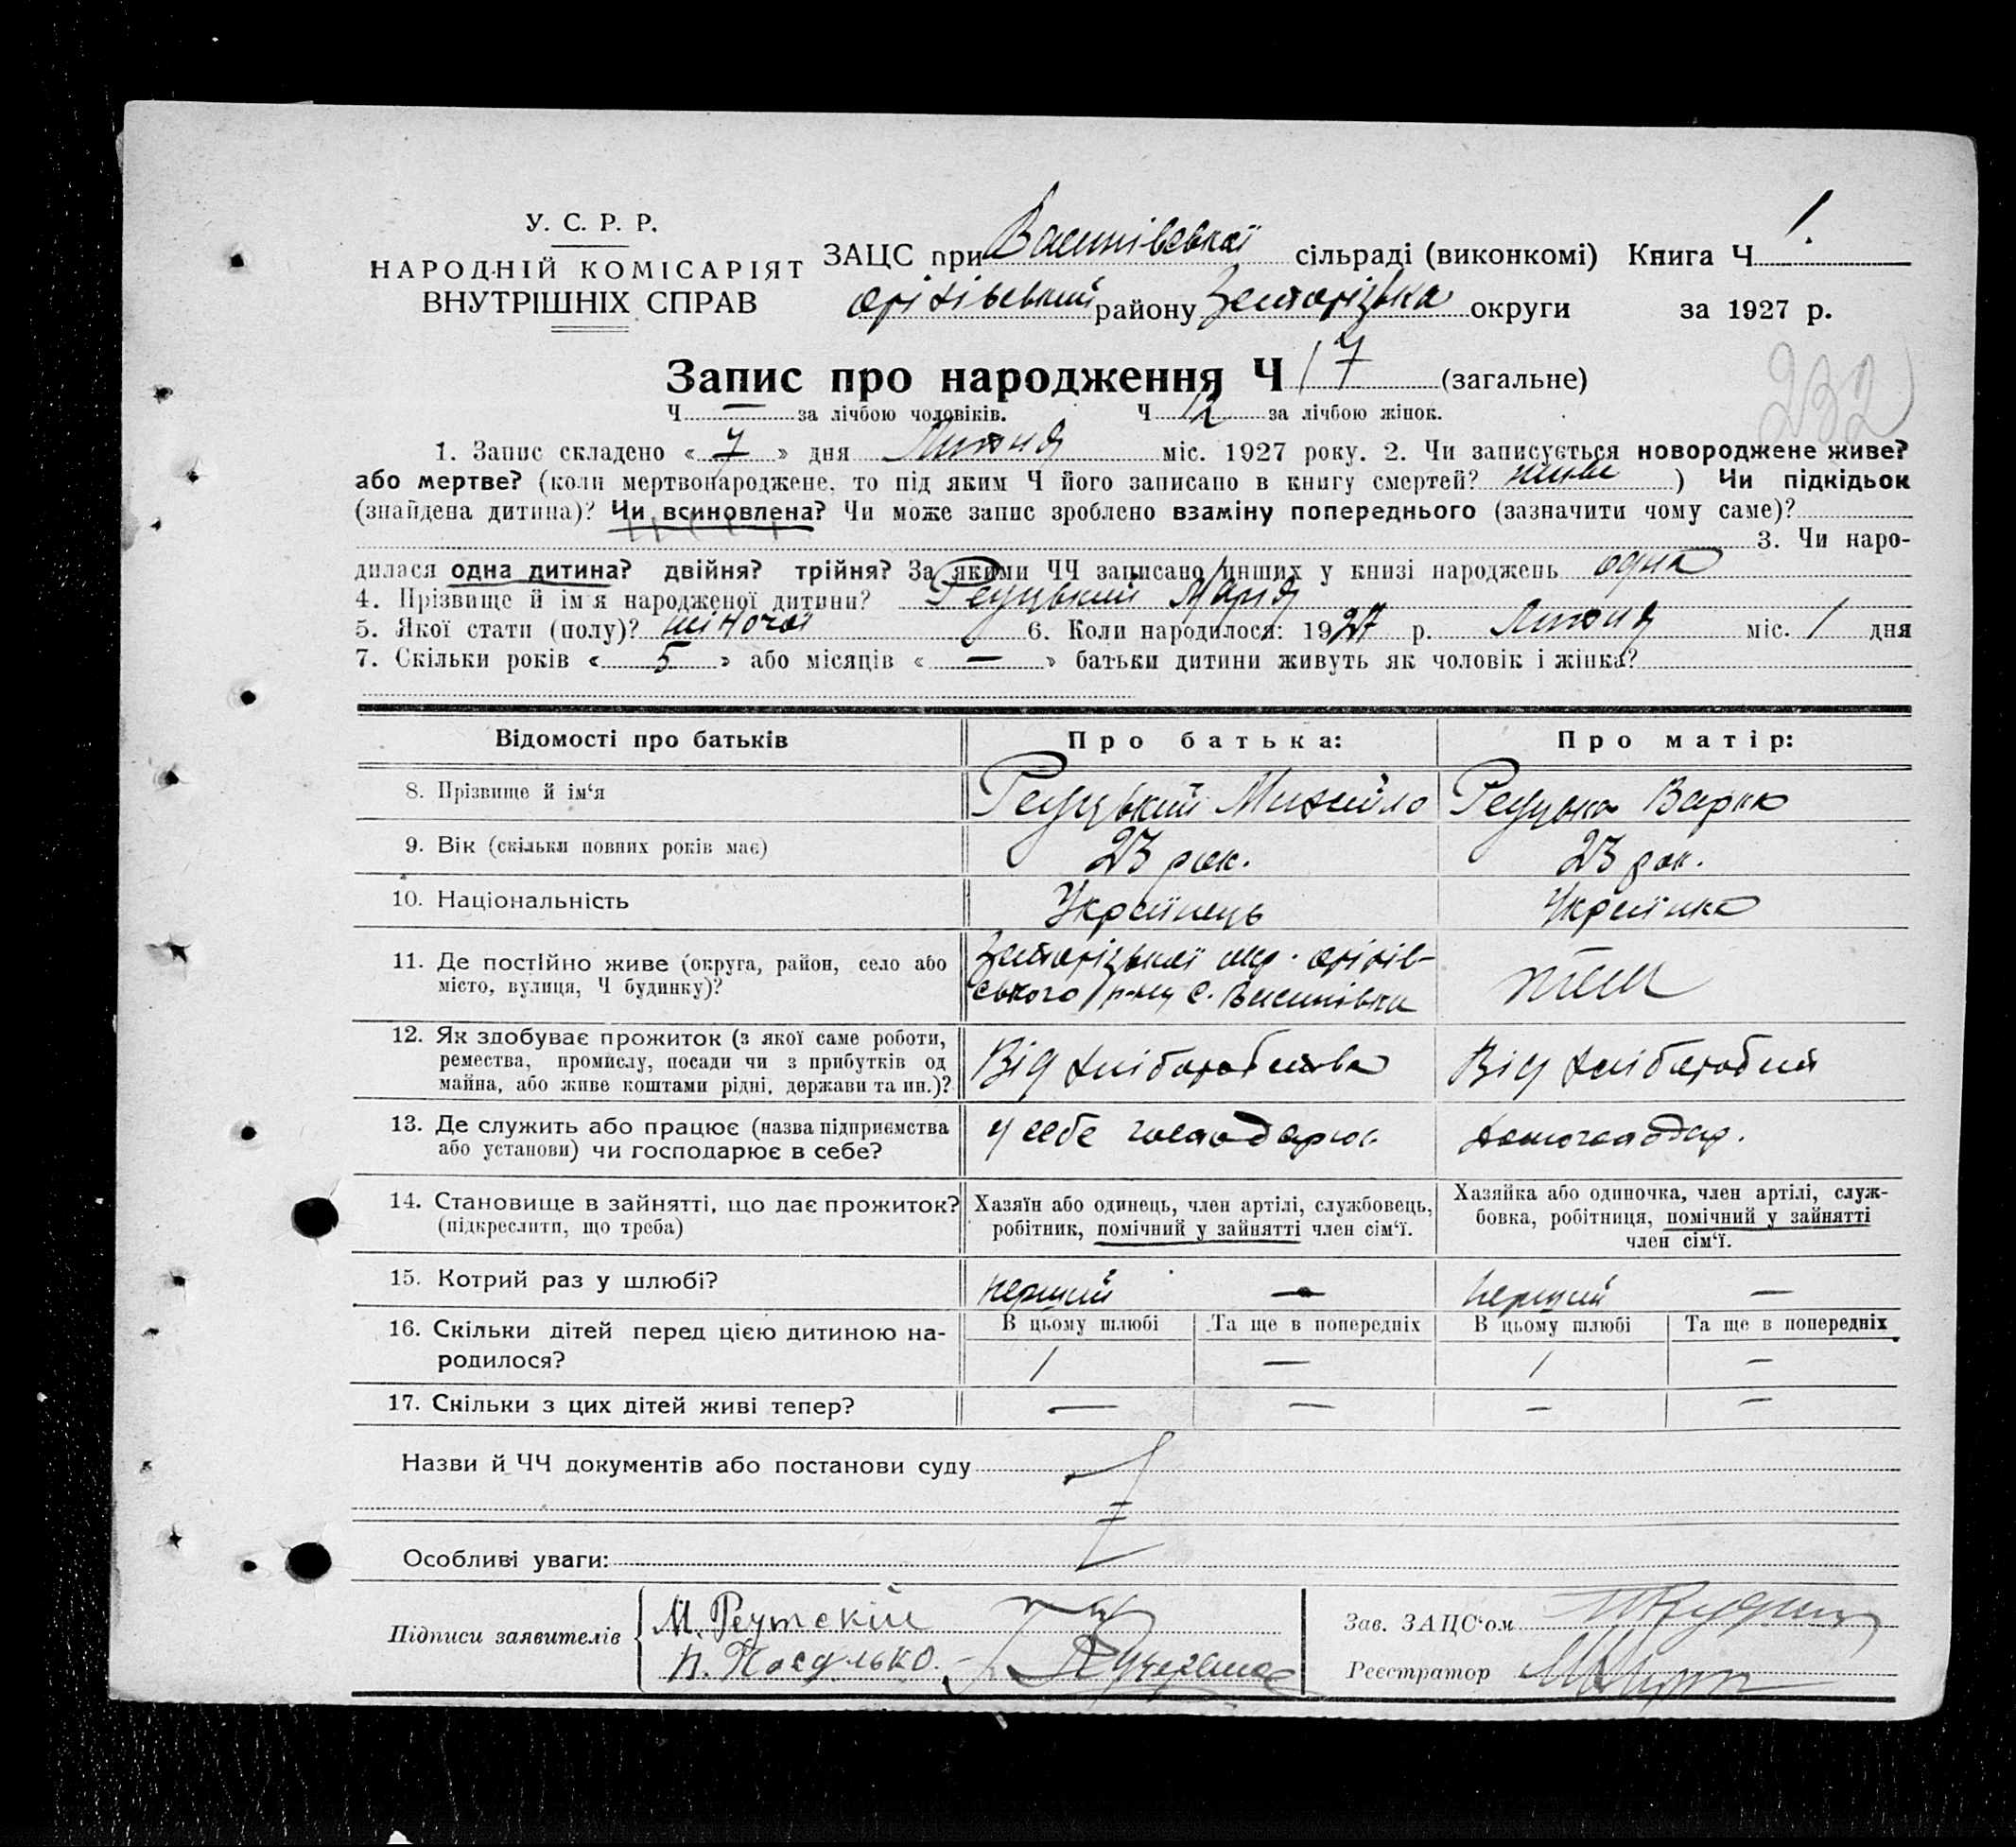 У. С. Р. Р.
НАРОДНІЙ КОМІСАРІЯТ
ВНУТРІШНІХ СПРАВ
ЗАЦС при Василівській сільраді (виконкомі) Книга Ч 1.
оріхівський району Запорізька округи за 1927 р.
232
Запис про народження Ч 17 (загальне)
Ч — за лічбою чоловіків. Ч 12 за лічбою жінок.
1. Запис складено « 7 » дня Липня міс. 1927 року. 2. Чи записується новороджене живе?
або мертве? (коли мертвонароджене, то під яким Ч його записано в книгу смертей? живе ) Чи підкідьок
(знайдена дитина)? Чи всиновлена? Чи може запис зроблено взаміну попереднього (зазначити чому саме)?
3. Чи наро-
дилася одна дитина? двійня? трійня? За якими ЧЧ записано инших у книзі народжень одна
4. Прізвище й ім'я народженої дитини? Реуцький Марія
5. Якої стати (полу)? жіночої 6. Коли народилося: 1927 р. Липня міс. 1 дня
7. Скільки років « 5 » або місяців « — » батьки дитини живуть як чоловік і жінка?
Відомості про батьків Про батька: Про матір:
8. Прізвище й ім'я Реуцький Михайло Реуцька Варка
9. Вік (скільки повних років має) 23 рок. 23 рок.
10. Національність Українець Українка
11. Де постійно живе (округа, район, село або Запорізької окр. оріхів-
місто, вулиця, Ч будинку)? ського р-ну с. Василівка теж
12. Як здобуває прожиток (з якої саме роботи,
ремества, промислу, посади чи з прибутків од Від хліборобства Від хлібороб
майна, або живе коштами рідні, держави та ин.)?
13. Де служить або працює (назва підприємства у себе господарює домогосподар.
або установи) чи господарює в себе?
14. Становище в зайнятті, що дає прожиток? Хазяїн або одинець, член артілі, службовець, Хазяйка або одиночка, член артілі, служ-
(підкреслити, що треба) робітник, помічний у зайнятті член сім'ї. бовка, робітниця, помічний у зайнятті
член сім'ї.
15. Котрий раз у шлюбі? перший — перший —
16. Скільки дітей перед цією дитиною на- В цьому шлюбі Та ще в попередніх В цьому шлюбі Та ще в попередніх
родилося? 1 — 1 —
17. Скільки з цих дітей живі тепер? — — — —
Назви й ЧЧ документів або постанови суду
Особливі уваги:
Підписи заявителів М. Реутскій
Зав. ЗАЦС'ом
Реєстратор